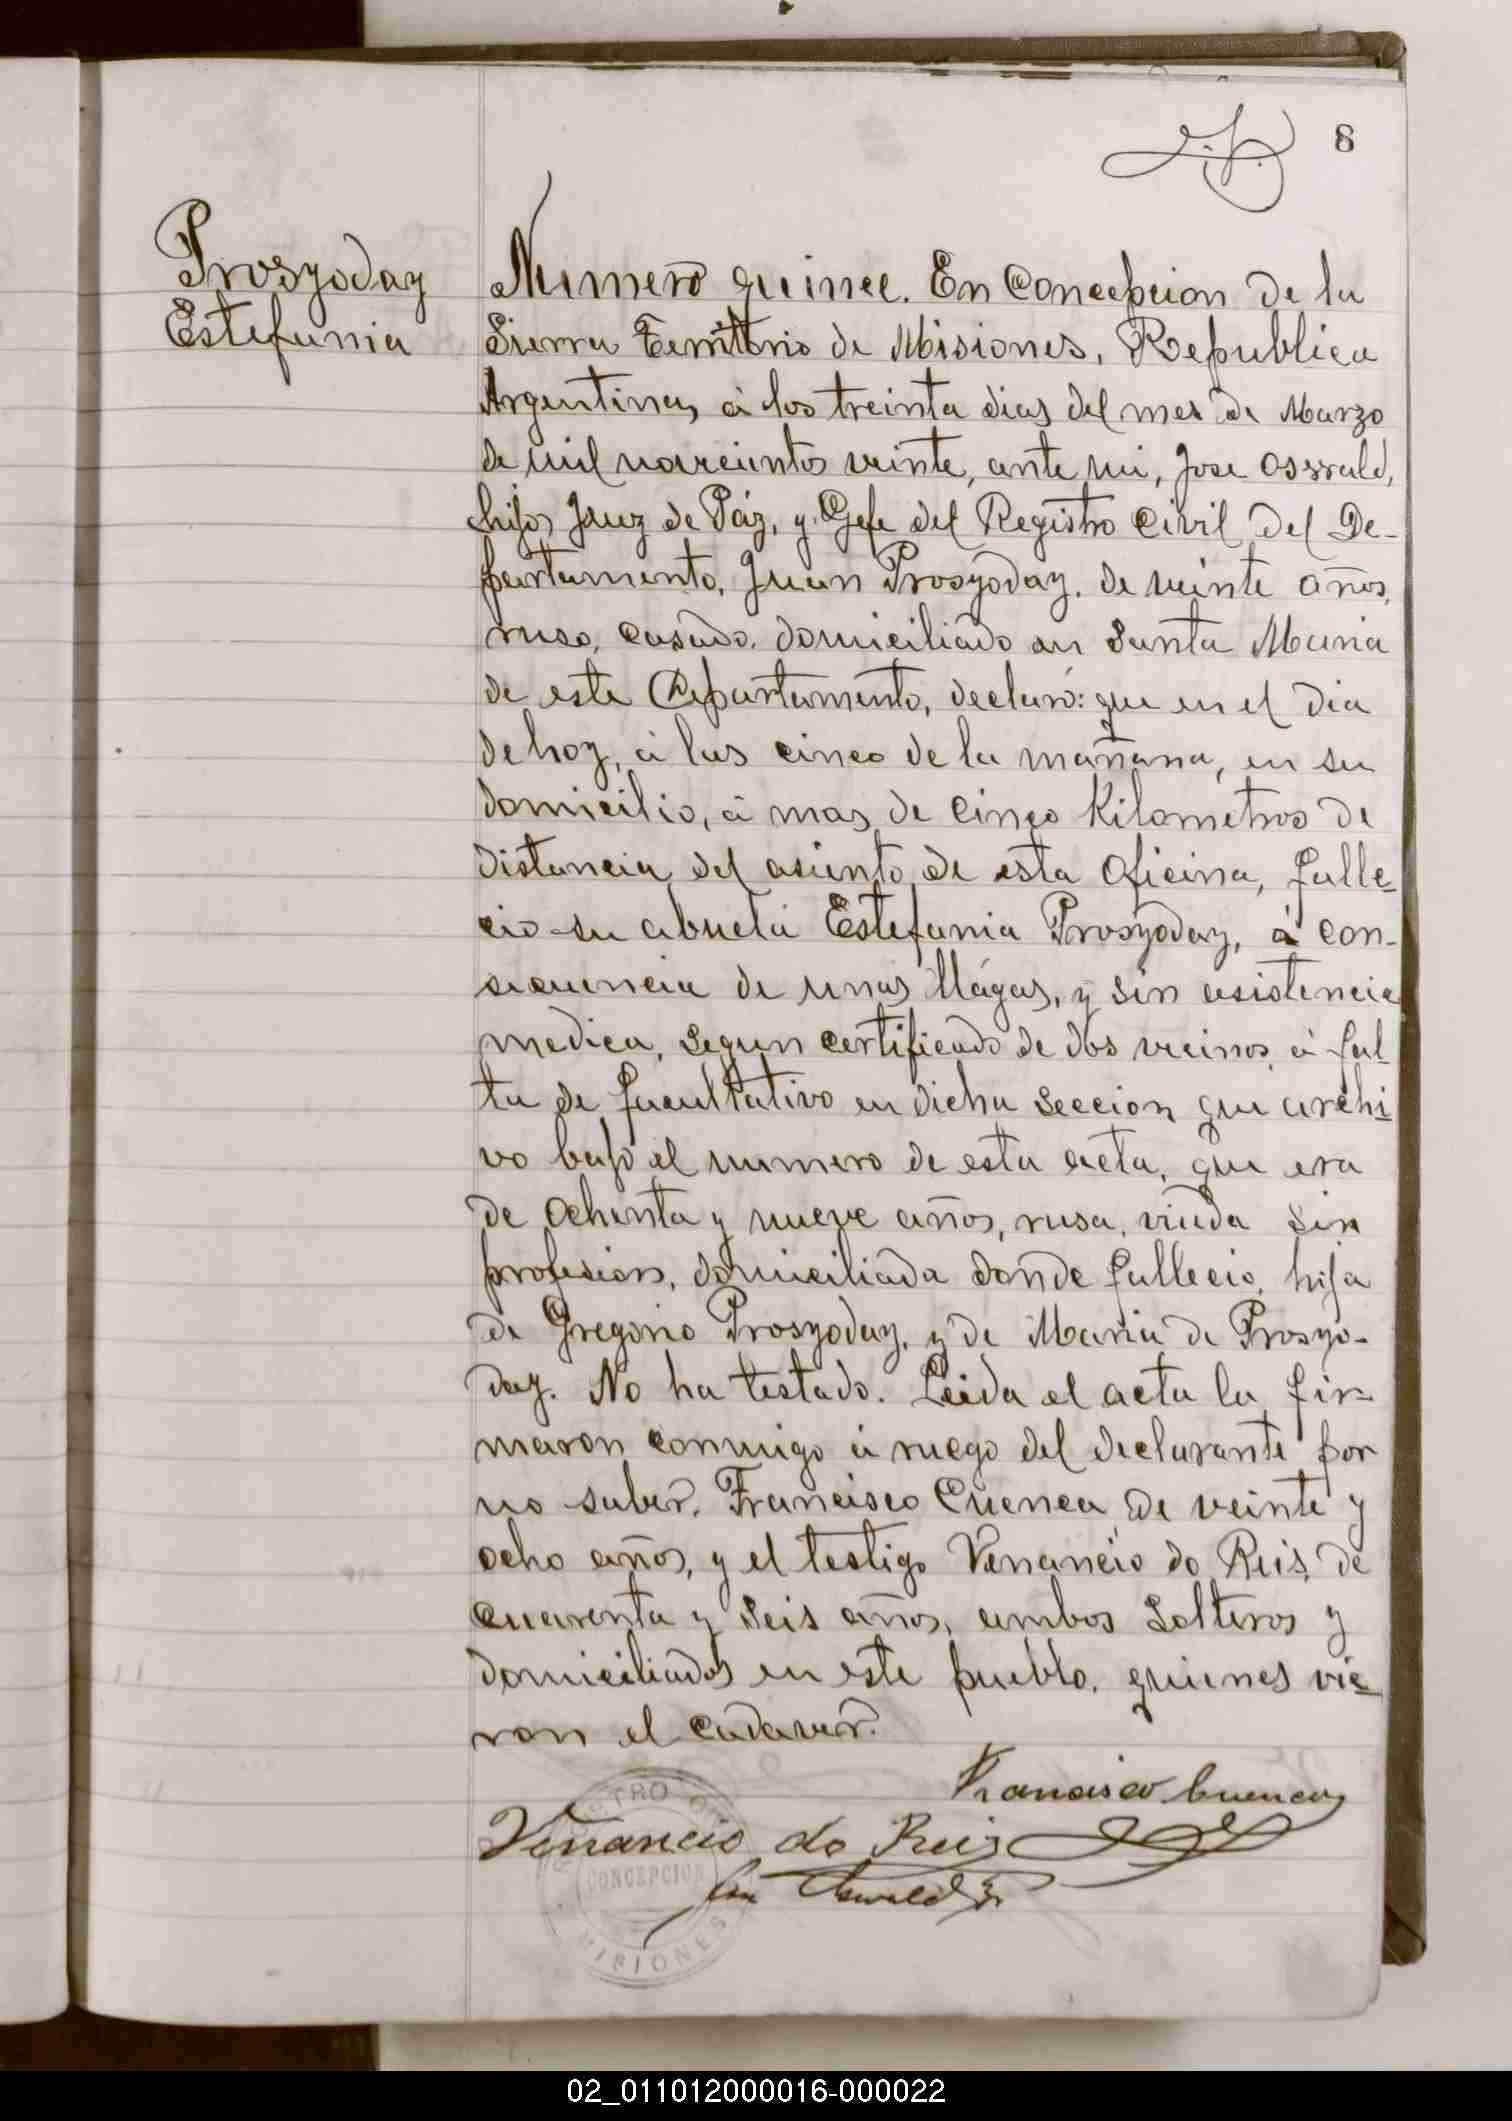 8
Prosyoday
Estefania
Numero quince. En Concepcion de la
Sierra Territorio de Misiones, Republica
Argentina, á los treinta dias del mes de Marzo
de mil novecientos veinte, ante mi, Jose Osswald,
hijo, Juez de Páz, y Gefe del Registro Civil del De-
partamento, Juan Prosyoday, de veinte años,
ruso, casado, domiciliado en Santa Maria
de este Departamento, declaró: que en el dia
de hoy, á las cinco de la mañana, en su
domicilio, á mas de cinco Kilometros de
distancia del asiento de esta Oficina, falle-
cio su abuela Estefania Prosyoday, á con-
secuencia de unas llágas, y sin asistencia
medica, segun certificado de dos vecinos á fal-
ta de facultativo en dicha Seccion que archi-
vo bajo el numero de esta acta, que era
de ochenta y nueve años, rusa, viuda sin
profesion, domiciliada donde fallecio, hija
de Gregorio Prosyoday, y de Maria de Prosyo-
day. No ha testado. Leida el acta la fir-
maron conmigo á ruego del declarante por
no saber, Francisco Cuenca de veinte y
ocho años, y el testigo Venancio do Reis, de
cuarenta y seis años, ambos Solteros y
domiciliados en este pueblo, quienes vie-
ron el cadaver.
Francisco Cuenca
Venancio do Reis
Jose Oswald
CONCEPCION
MISIONES
02_011012000016-000022